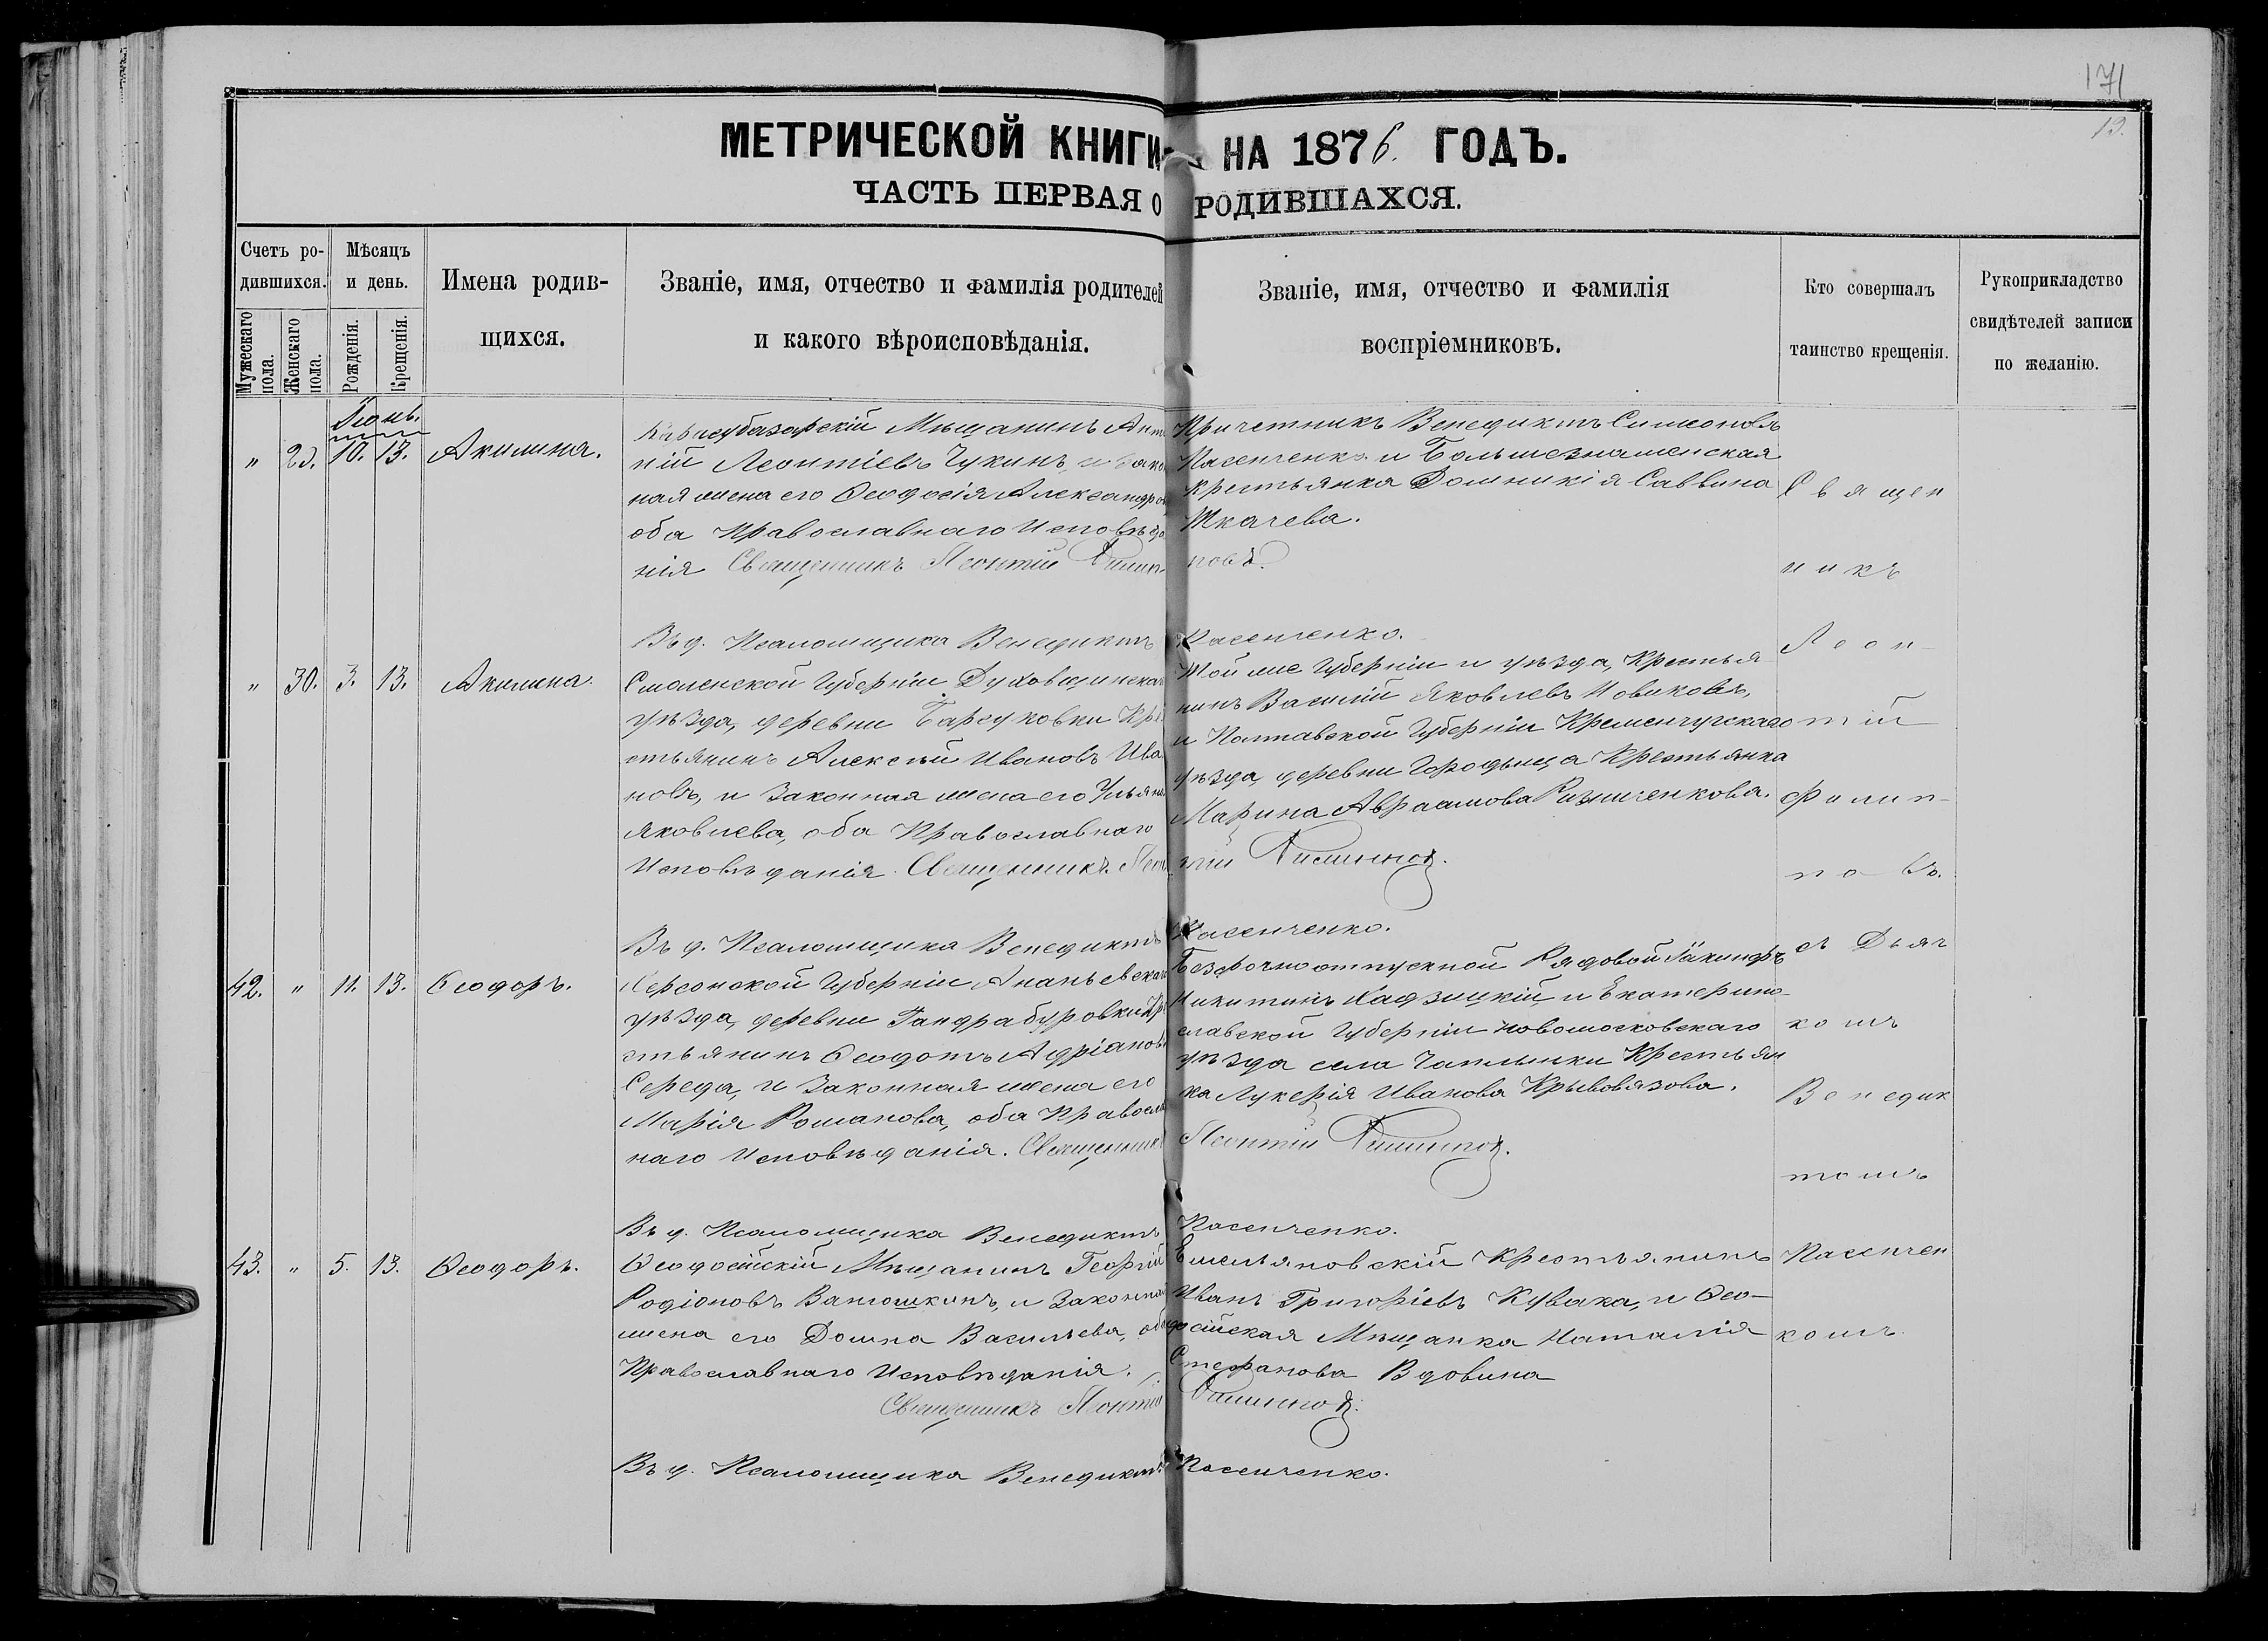 171
19.
МЕТРИЧЕСКОЙ КНИГИ НА 1876. ГОДЪ.
ЧАСТЬ ПЕРВАЯ О РОДИВШАХСЯ.
Счетъ ро-
дившихся.
Мужескаго пола.
Женскаго пола.
Мѣсяцъ
и день.
Рожденія.
Крещенія.
Имена родив-
щихся.
Званіе, имя, отчество и фамилія родителей
и какого вѣроисповѣданія.
Званіе, имя, отчество и фамилія
воспріемниковъ.
Кто совершалъ
таинство крещенія.
Рукоприкладство
свидѣтелей записи
по желанію.
Іюнь.
" 29. 10. 13. Акилина.
Карасубазарскій Мѣщанинъ Анто
ній Леонтіевъ Чукинъ, и Закон
ная жена его Ѳеодосія Александров
оба Православнаго Исповѣда
нія Священникъ Леонтій Филип-
Въ д. Псаломщика Венедиктъ
Причетникъ Венедиктъ Симеоновъ
Пасенченко и Большезнаменская
крестьянка Домникія Саввина
Ткачева.
повъ.
Пасенченко.
" 30. 3. 13. Акилина.
Смоленской Губерніи Духовщинскаго
уѣзда, деревни Барсуковки Кре
стьянинъ Алексѣй Ивановъ Ива
новъ, и Законная жена его Ульяна
Яковлева, оба Православнаго
Исповѣданія. Священникъ Леон
Въ д. Псаломщика Венедиктъ
Той же Губерніи и уѣзда, Крестья
нинъ Василій Яковлевъ Новиковъ,
и Полтавской Губерніи Кременчугскаго
уѣзда, деревни Городыща Крестьянка
Марина Авраамова
тій Филипповъ.
Пасенченко.
42. " 11. 13. Ѳеодоръ.
Херсонской Губерніи Ананьевскаго
уѣзда, деревни Гандрабуровки Кре
стьянинъ Ѳеодотъ Адріановъ
Середа, и Законная жена его
Марія Романова, оба Православ
наго Исповѣданія. Священникъ
Въ д. Псаломщика Венедиктъ
Безсрочноотпускной Рядовой Іакинфъ
Никитинъ Кадзицкій и Екатерино-
славской Губерніи Новомосковскаго
уѣзда села Чаплинки Крестьян
ка Лукерія Иванова Крывовязова.
Леонтій Филипповъ.
Пасенченко.
43. " 5. 13. Ѳеодоръ.
Ѳеодосійскій Мѣщанинъ Георгій
Родіоновъ Ванюшкинъ, и Законная
жена его Домна Васильева, оба
Православнаго Исповѣданія.
Священникъ Леонтій
Въ д. Псаломщика Венедиктъ
Емельяновскій Крестьянинъ
Иванъ Григоріевъ Кувака, и Ѳео-
досійская Мѣщанка Наталія
Стефанова Вдовина
Филипповъ.
Пасенченко.
Священ
никъ
Леон-
тій
Филип-
повъ.
съ Дьяч
комъ
Венедик
томъ
Пасенчен
комъ.